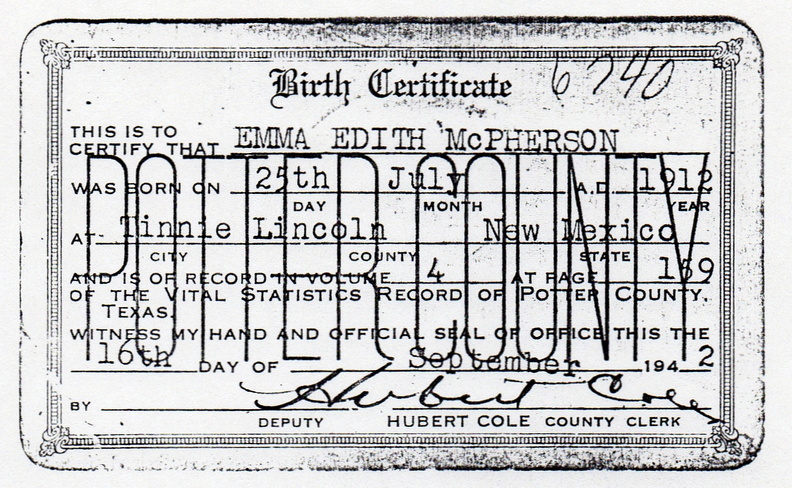 Birth Certificate 6740
THIS IS TO
CERTIFY THAT EMMA EDITH McPHERSON
POTTER COUNTY
WAS BORN ON 25th July A.D. 1912
DAY MONTH YEAR
AT Tinnie Lincoln New Mexico
CITY COUNTY STATE
AND IS OF RECORD IN VOLUME 4 AT PAGE 159
OF THE VITAL STATISTICS RECORD OF POTTER COUNTY,
TEXAS.
WITNESS MY HAND AND OFFICIAL SEAL OF OFFICE THIS THE
16th DAY OF September 1942
BY Hubert Cole
DEPUTY HUBERT COLE COUNTY CLERK